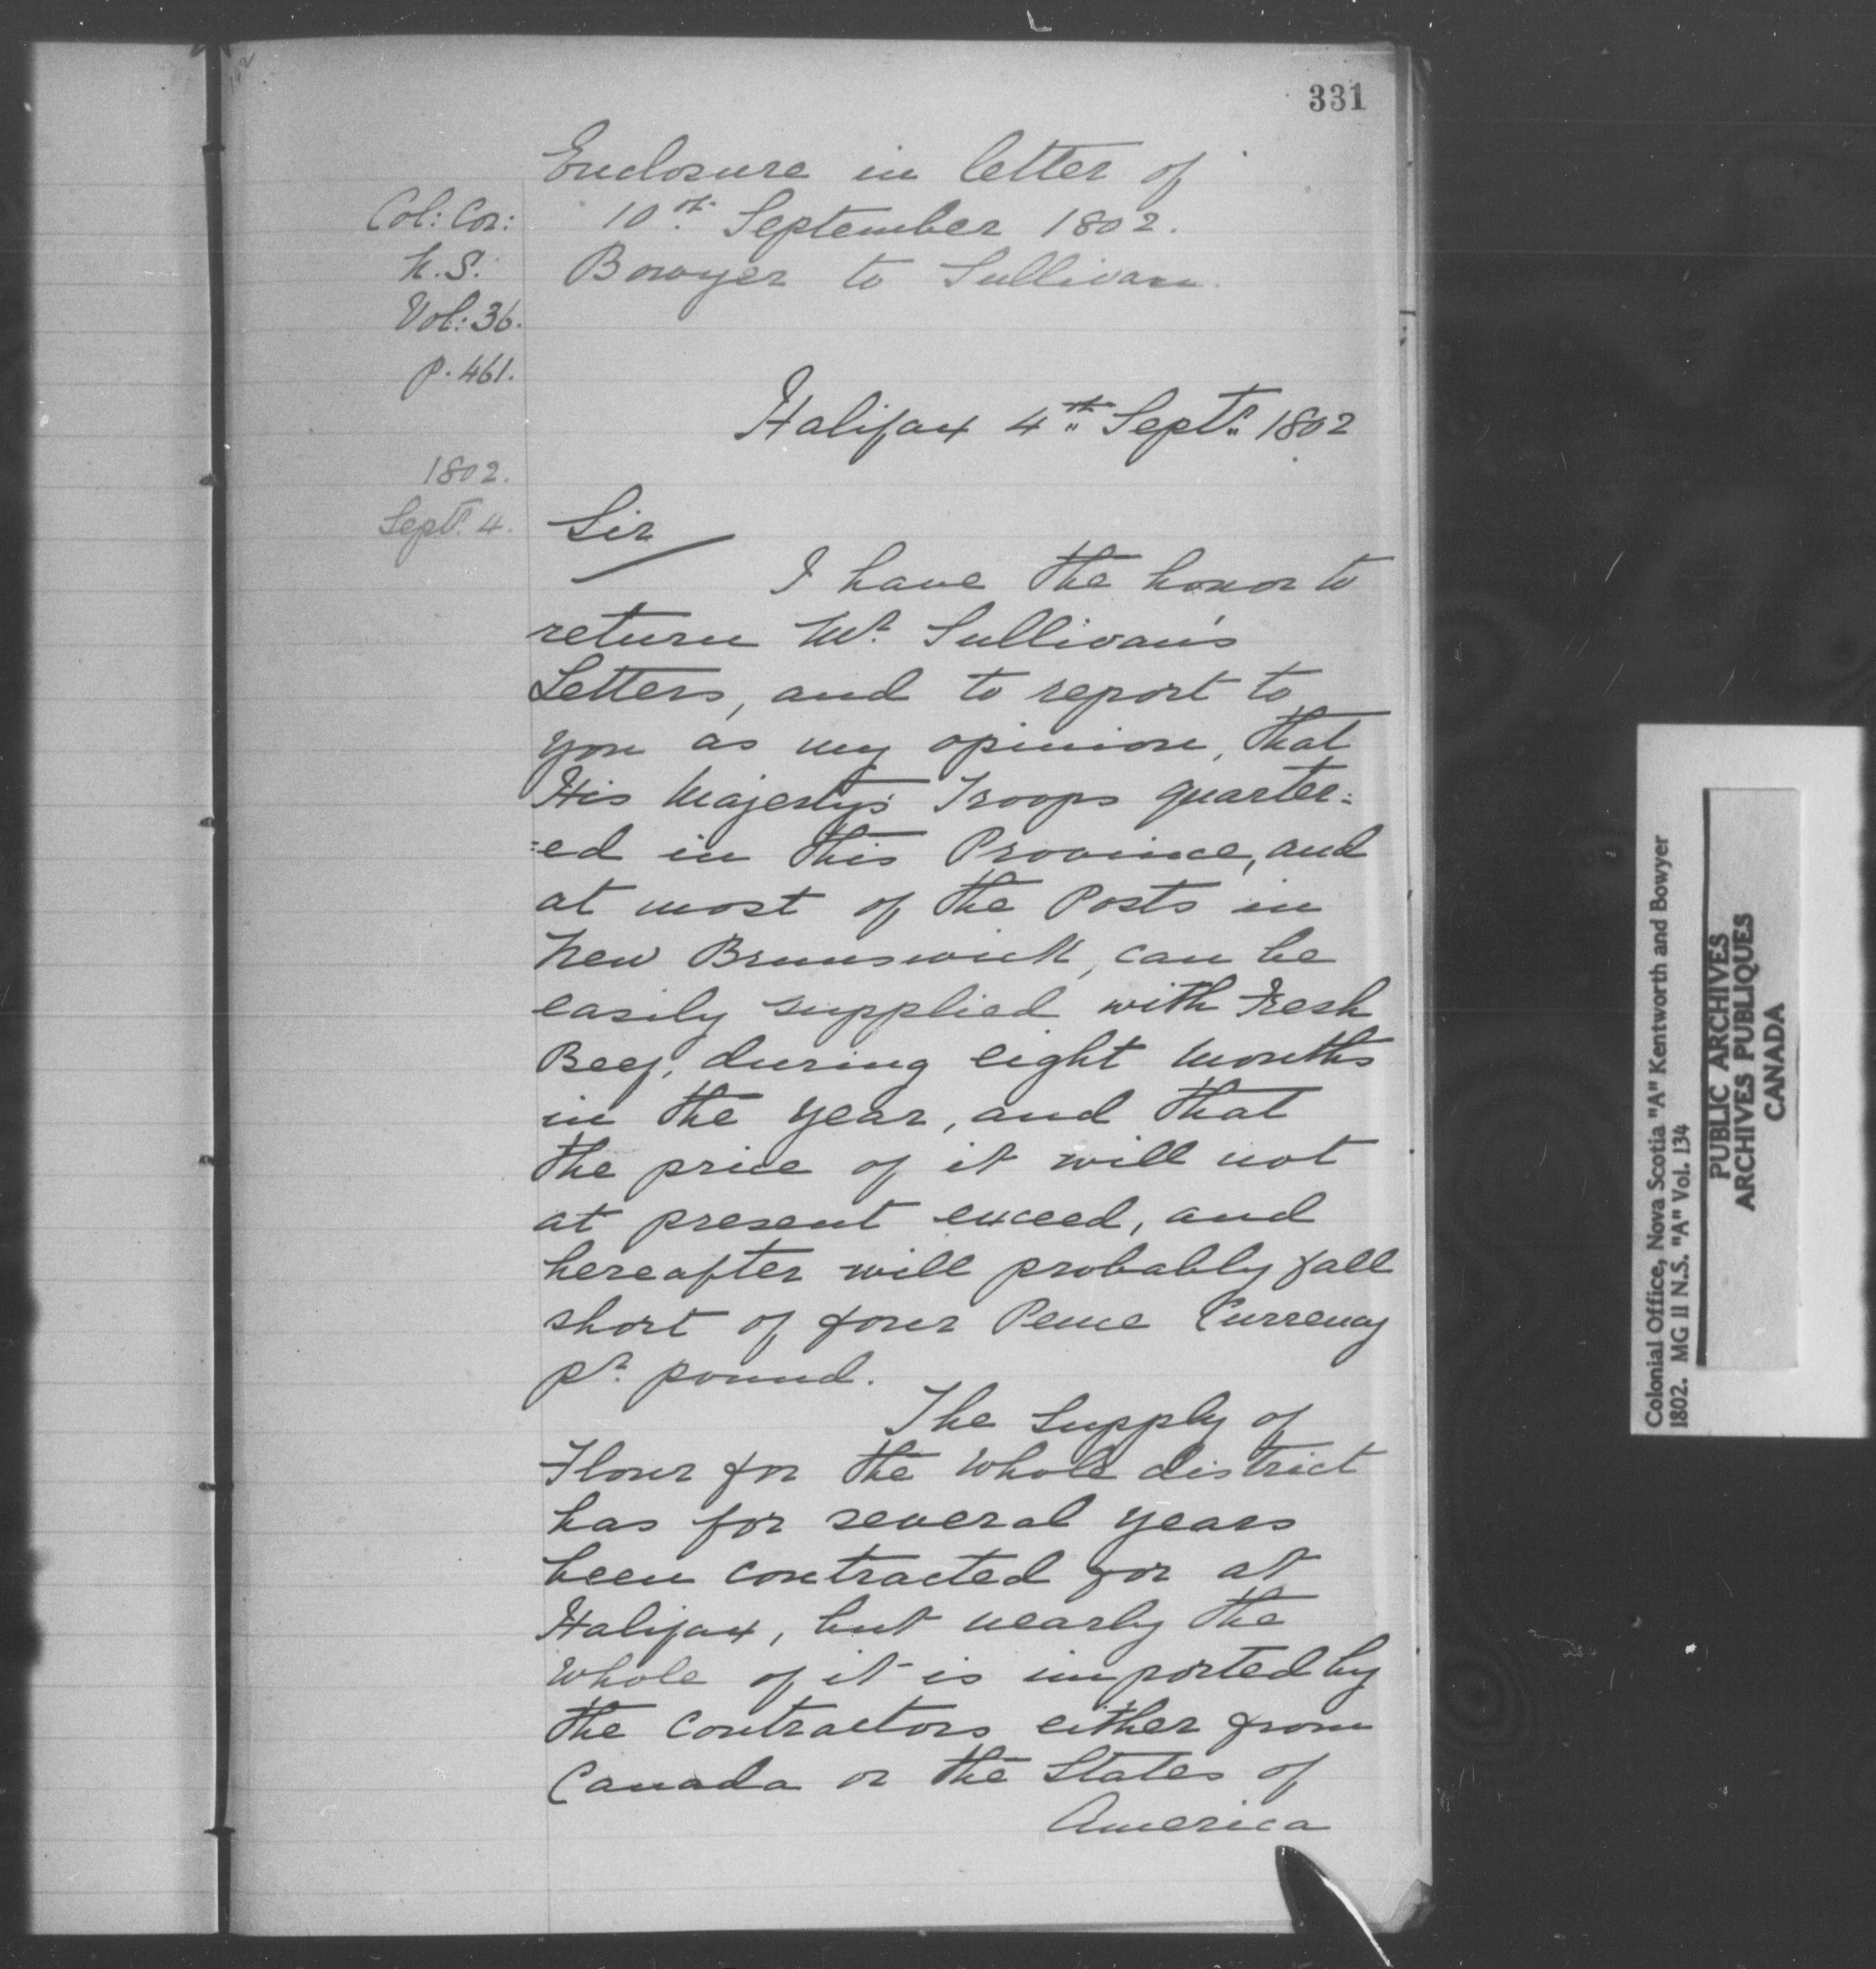 331
Enclosure in letter of
10th September 1802.
Bowyer to Sullivan.
Col: Cor:
N.S.
Vol: 36.
p. 461.
Halifax 4th Septr. 1802
1802.
Septr. 4.
Sir
I have the honor to
return Mr. Sullivan's
Letters, and to report to
you as my opinion, that
His Majesty's Troops quarter=
=ed in this Province, and
at most of the Posts in
New Brunswick, can be
easily supplied with Fresh
Beef, during eight months
in the year, and that
the price of it will not
at present exceed, and
hereafter will probably fall
short of four Pence Currency
pr. pound.
The Supply of
Flour for the whole district
has for several years
been contracted for at
Halifax, but nearly the
whole of it is imported by
the contractors either from
Canada or the States of
America
Colonial Office, Nova Scotia "A" Kentworth and Bowyer
1802. MG 11 N.S. "A" Vol. 134
PUBLIC ARCHIVES
ARCHIVES PUBLIQUES
CANADA